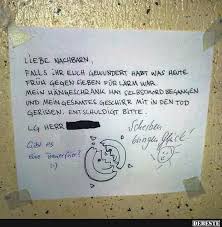 LIEBE NACHBARN,
FALLS IHR EUCH GEWUNDERT HABT WAS HEUTE
FRÜH GEGEN SIEBEN FÜR LÄRM WAR.
MEIN HÄNGESCHRANK HAT SELBSTMORD BEGANGEN
UND MEIN GESAMTES GESCHIRR MIT IN DEN TOD
GERISSEN. ENTSCHULDIGT BITTE.
LG HERR
Gibt es
eine Trauerfeier?
:)
Scherben
bringen Glück!
DEBESTE